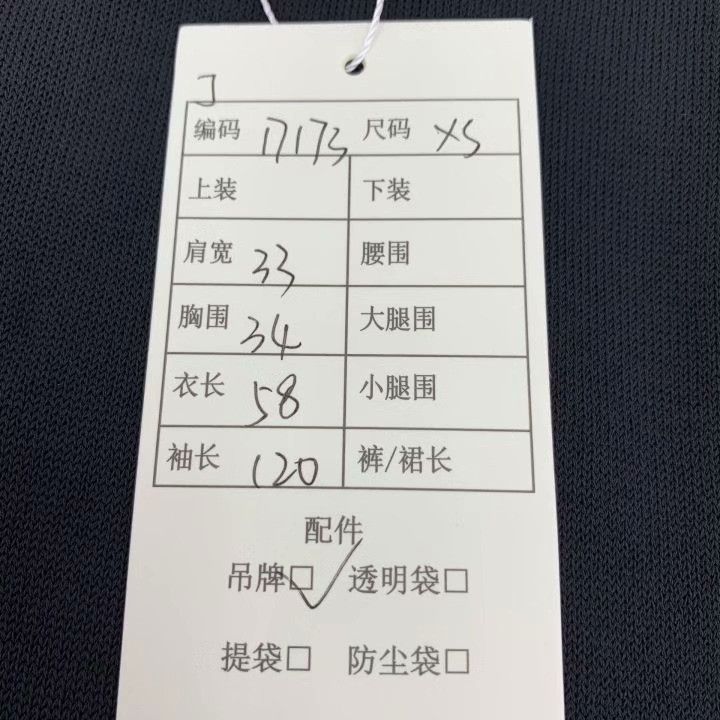 J
编码 17173 尺码 XS
上装 下装
肩宽 33 腰围
胸围 34 大腿围
衣长 58 小腿围
袖长 120 裤/裙长
配件
吊牌☑ 透明袋□
提袋□ 防尘袋□